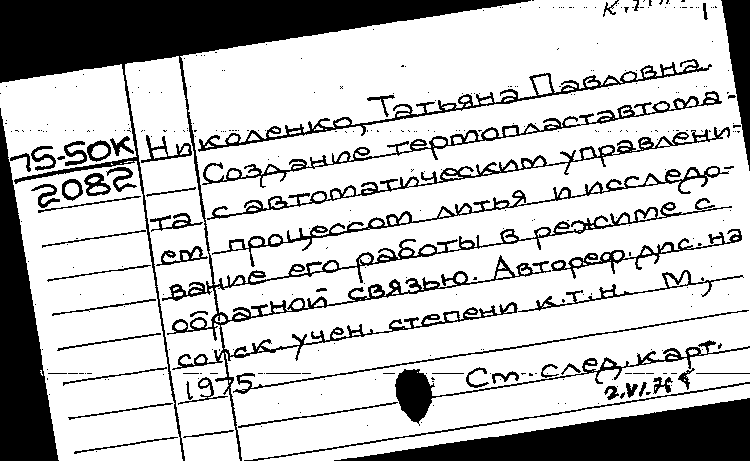 75-50К
2082
Николенко, Татьяна Павловна.
Создание термопластавтома-
та с автоматическим управлени-
ем процессом литья и исследо-
вание его работы в режиме с
обратной связью. Автореф.дис. на
соиск. учен. степени к.т.н. М.,
1975.
См. след. карт.